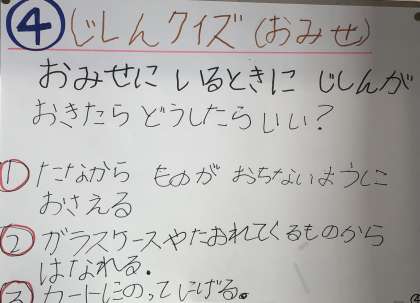 ④ じしんクイズ(おみせ)
おみせに いるときに じしんが
おきたら どうしたら いい?
① たなから ものが おちないように
おさえる
② ガラスケースやたおれてくるものから
はなれる.
③ カートにのってにげる。